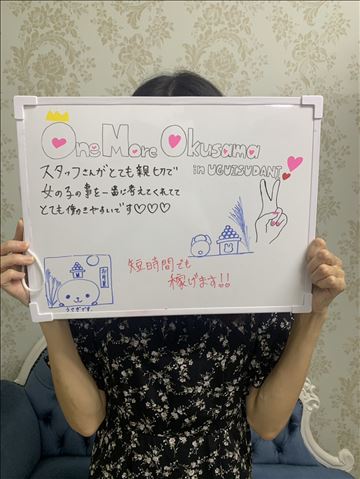 One More Okusama
in UGUISUDANI
スタッフさんがとても親切で
女の子の事を一番に考えてくれてて
とても働きやすいです♡♡♡
お月見
うさぎです。
短時間でも
稼げます!!